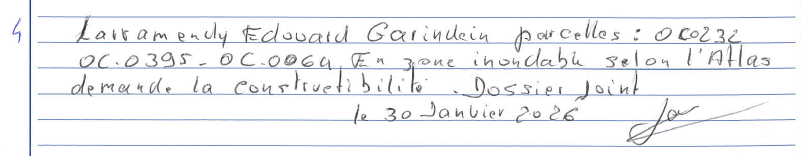 4 Larramendy Edouard Garindein parcelles : OC0232
OC.0395 - OC.0064. En zone inondable selon l'Atlas
demande la constructibilité. Dossier Joint
le 30 Janvier 2026